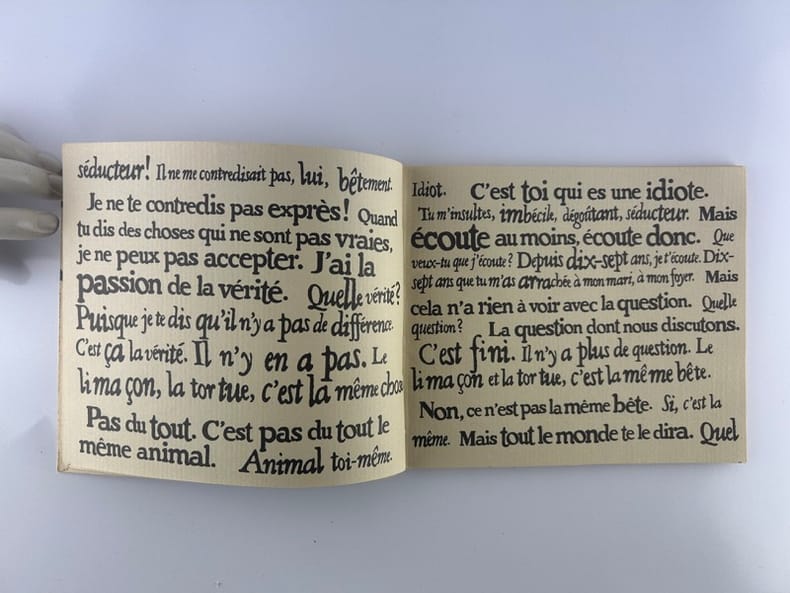 séducteur! Il ne me contredisait pas, lui, bêtement.
Je ne te contredis pas exprès! Quand
tu dis des choses qui ne sont pas vraies,
je ne peux pas accepter. J'ai la
passion de la vérité. Quelle vérité?
Puisque je te dis qu'il n'y a pas de différence.
C'est ça la vérité. Il n'y en a pas. Le
limaçon, la tortue, c'est la même chose
Pas du tout. C'est pas du tout le
même animal. Animal toi-même.
Idiot. C'est toi qui es une idiote.
Tu m'insultes, imbécile, dégoûtant, séducteur. Mais
écoute au moins, écoute donc. Que
veux-tu que j'écoute? Depuis dix-sept ans, je t'écoute. Dix-
sept ans que tu m'as arrachée à mon mari, à mon foyer. Mais
cela n'a rien à voir avec la question. Quelle
question? La question dont nous discutons.
C'est fini. Il n'y a plus de question. Le
limaçon et la tortue, c'est la même bête.
Non, ce n'est pas la même bête. Si, c'est la
même. Mais tout le monde te le dira. Quel